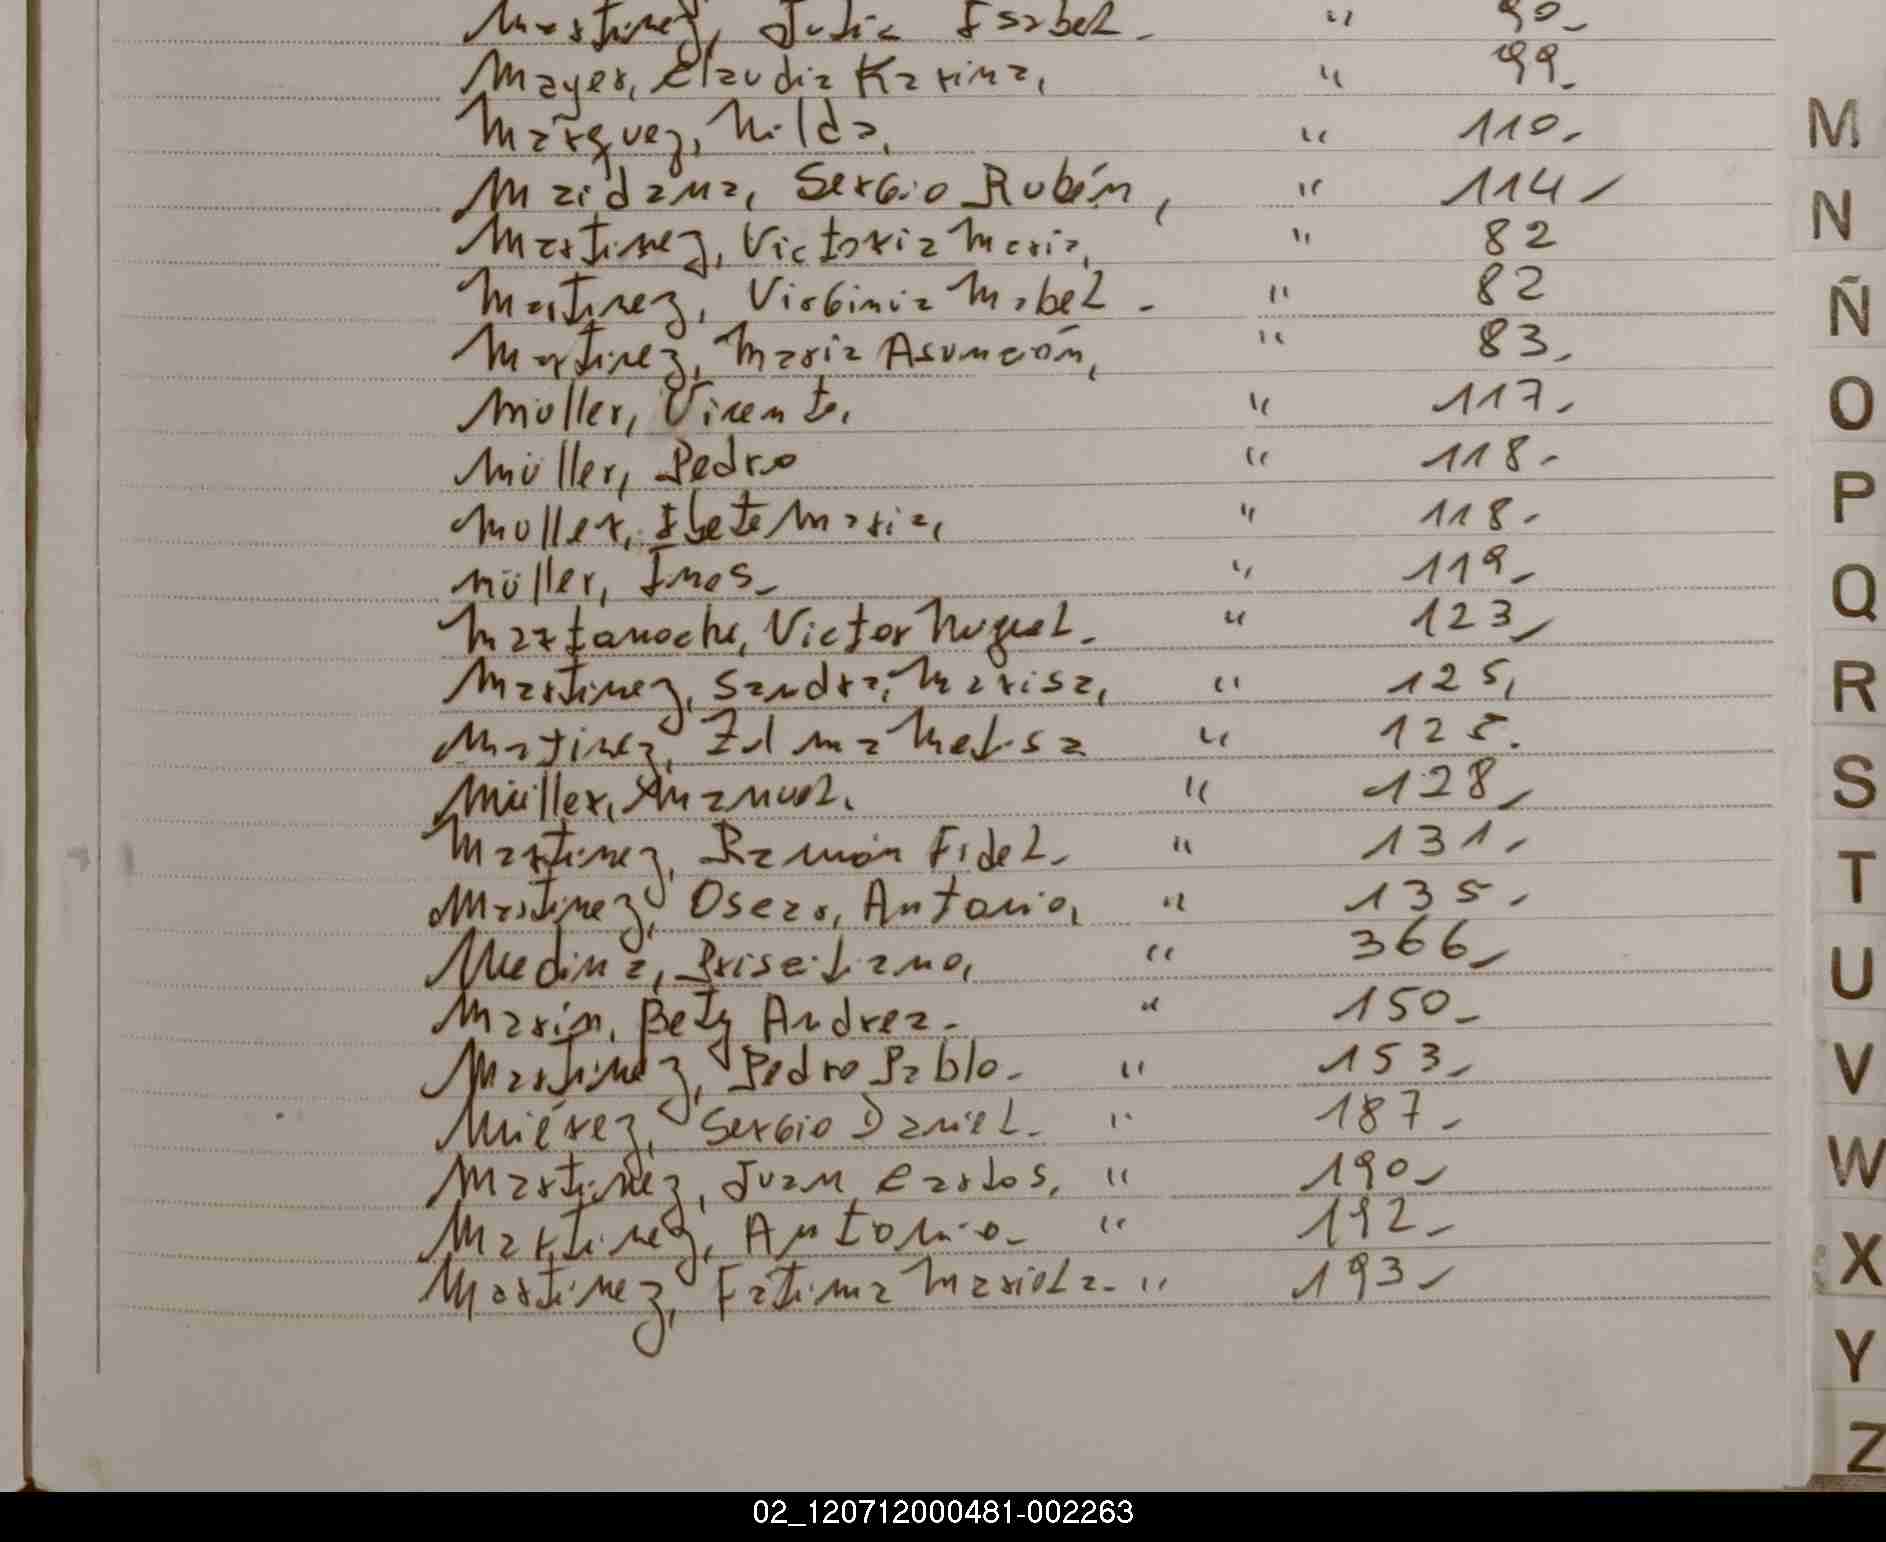 Martinez, Julia Isabel. " 90-
Mayer, Claudia Karina, " 99-
Márquez, Nilda, " 110-
Maidana, Sergio Rubén, " 114-
Martinez, Victoria Maria, " 82
Martinez, Virginia Mabel - " 82
Martinez, Maria Asunción, " 83-
Müller, Vicente, " 117-
Müller, Pedro " 118-
Muller, Ibete Maria, " 118-
Müller, Ines - " 119-
Victor Miguel. " 123-
Martinez, Sandra, Marisa, " 125,
Martinez, Zulma Melisa " 125.
Müller, Manuel. " 128-
Martinez, Ramón Fidel - " 131-
Martinez, Oscar, Antonio, " 135-
Medina, Prisciliano, " 366-
Marin, Bety Andrea - " 150-
Martinez, Pedro Pablo - " 153-
Miérez, Sergio Daniel. " 187-
Martinez, Juan Carlos, " 190-
Martinez, Antonio - " 192-
Martinez, Fatima Mariela - " 193-
M
N
Ñ
O
P
Q
R
S
T
U
V
W
X
Y
Z
02_120712000481-002263